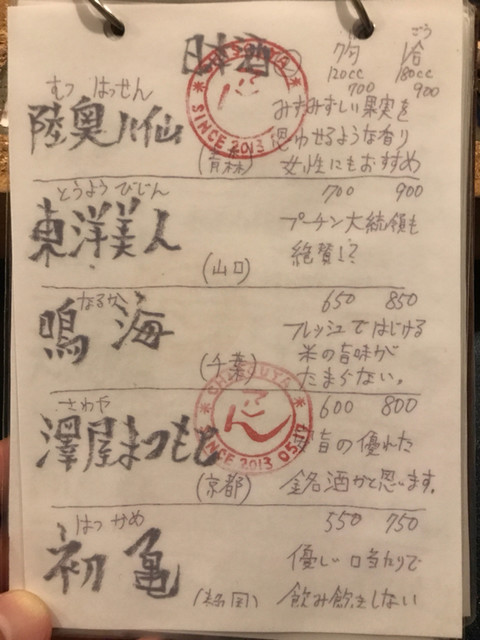 日本酒
ごう
勺 1合
120cc 180cc
700 900
むつ はっせん
陸奥八仙
(青森)
みずみずしい果実を
思わせるような香り
女性にもおすすめ
SINCE 2013
とうよう びじん
東洋美人
(山口)
700 900
プーチン大統領も
絶賛した?
なるか
鳴海
(千葉)
650 850
フレッシュではじける
米の旨味が
たまらない。
SINCE 2013 05.17
さわや
澤屋まつもと
(京都)
600 800
旨の優れた
銘酒かと思います。
はつ かめ
初亀
(静岡)
550 750
優しい口当たりで
飲み飽きしない